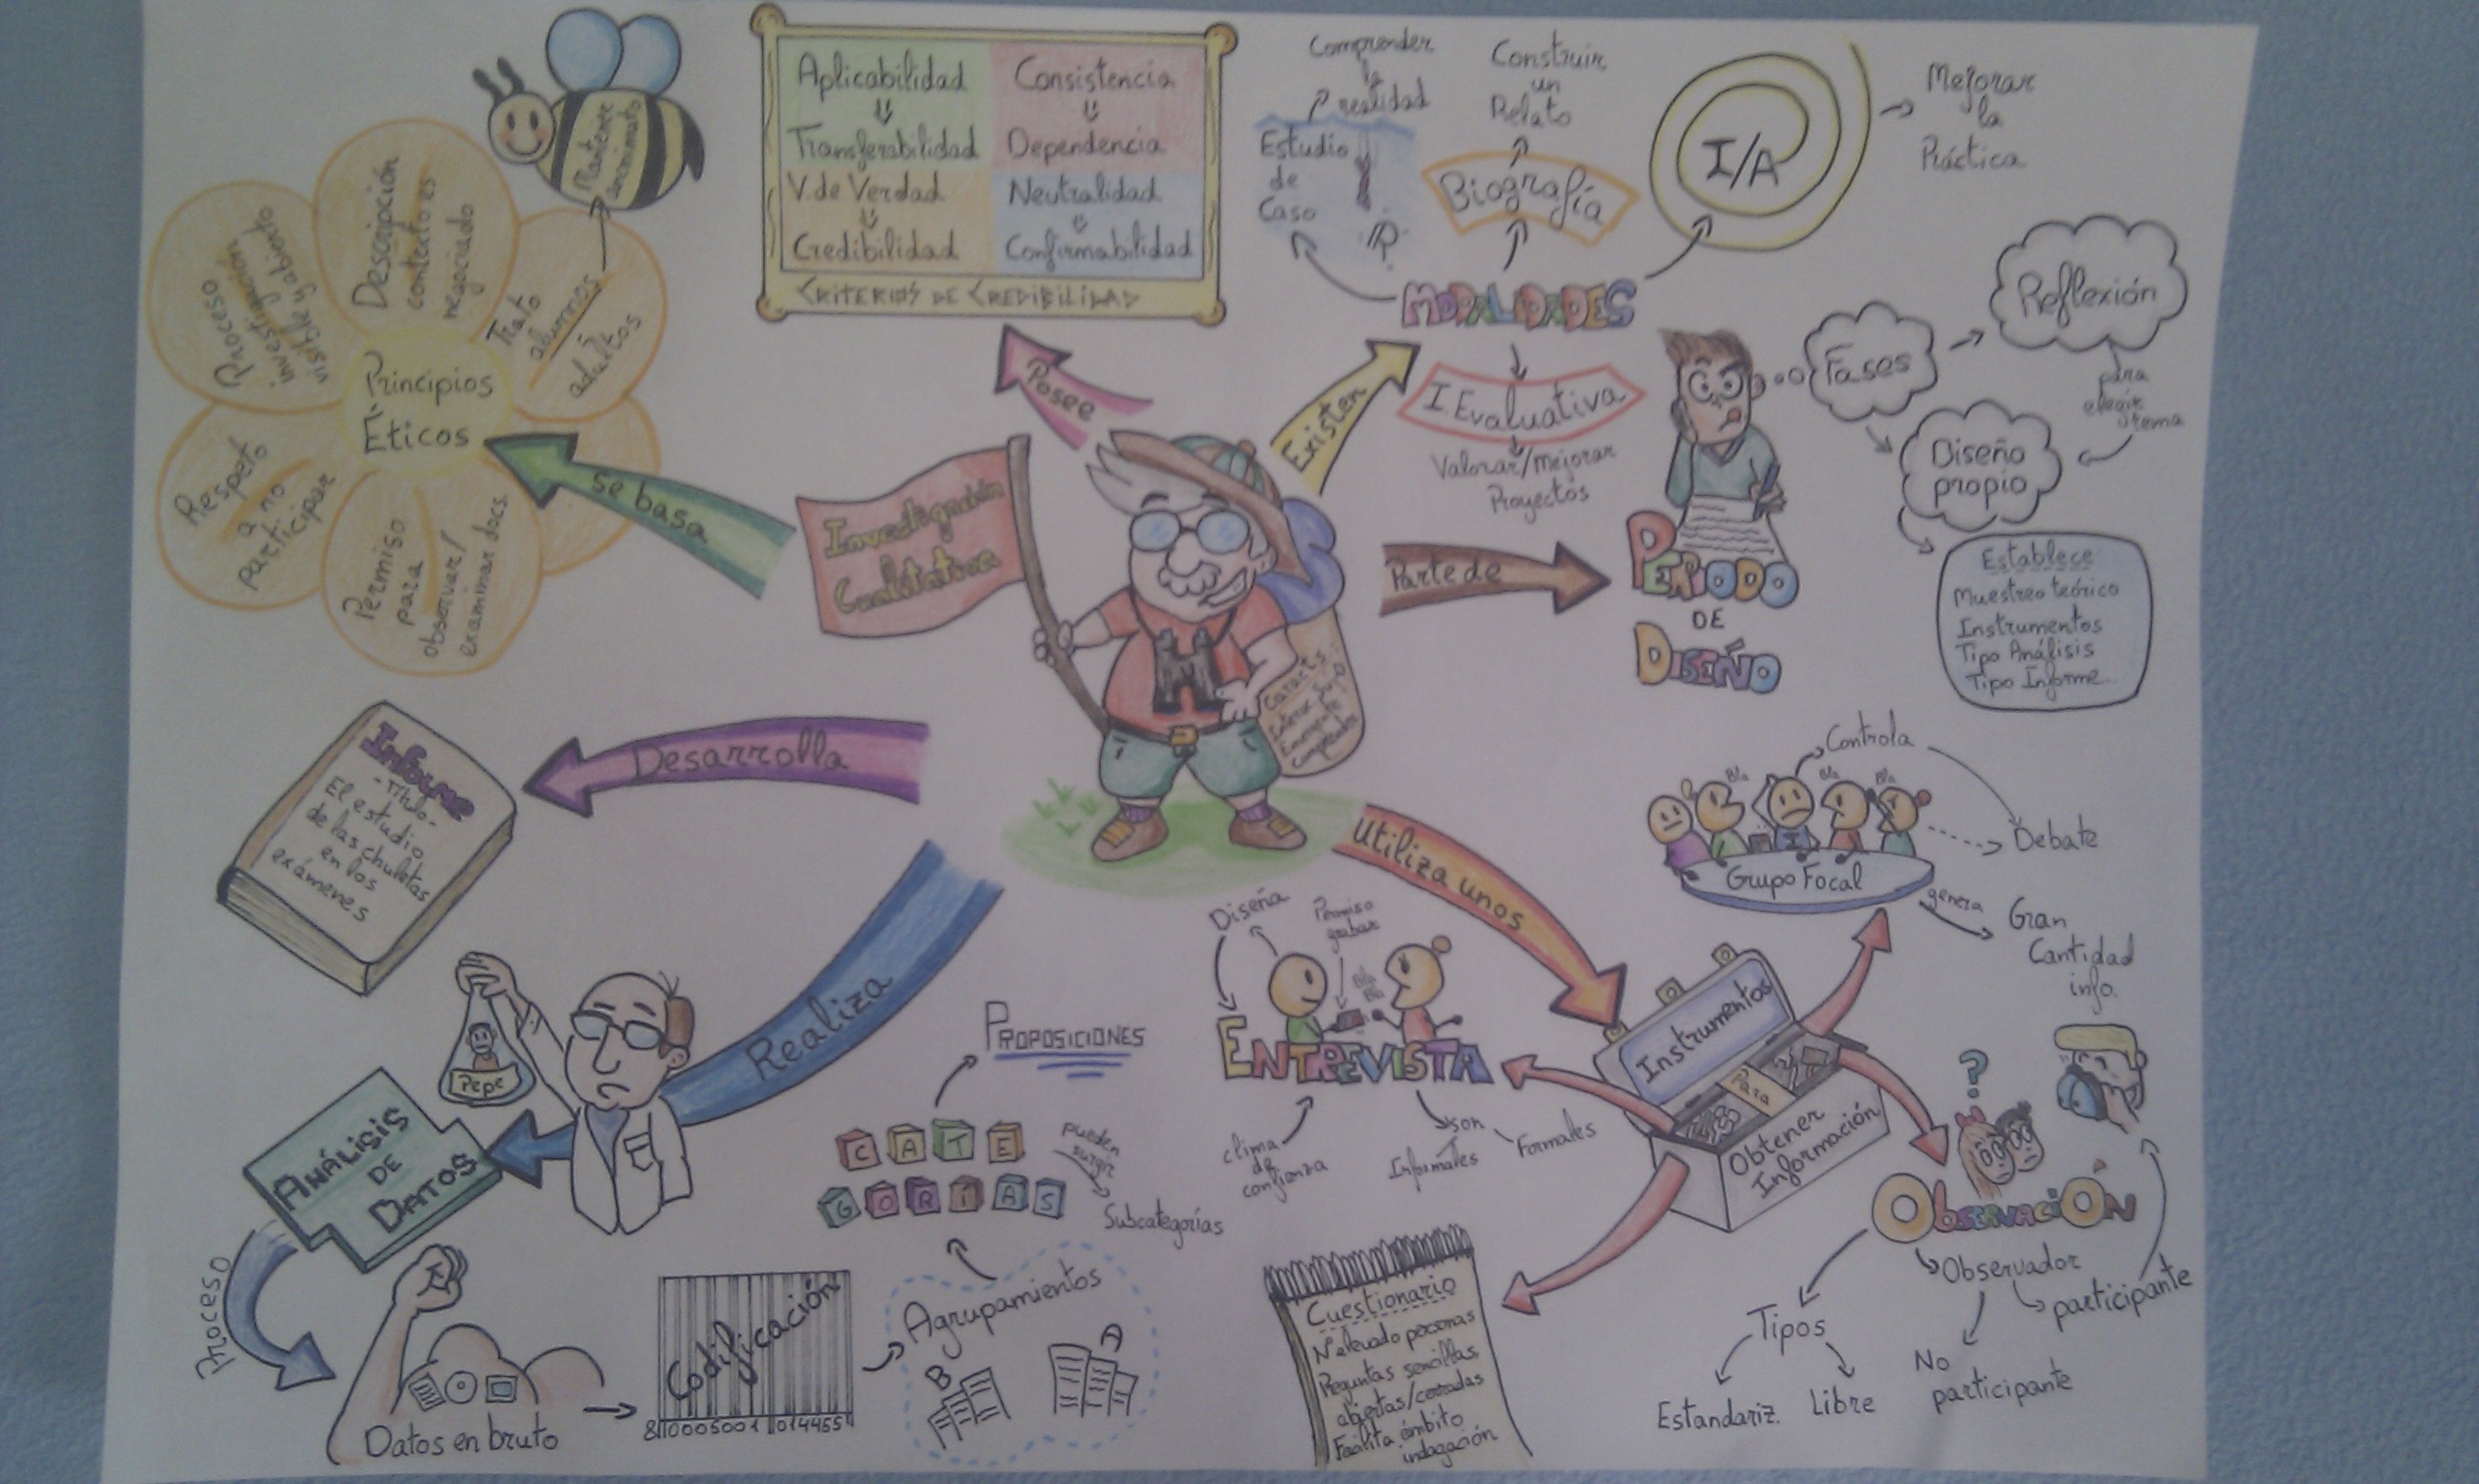 Investigación
Cualitativa
Caracts.:
Emergente
se basa
Principios
Éticos
Proceso
investigación
visible y abierto
Descripción
contexto es
negociado
Trato
alumnos
adultos
Mantener
anonimato
Respeto
a no
participar
Permiso
para
observar/
examinar docs.
Posee
Aplicabilidad
⇓
Transferabilidad
Consistencia
⇓
Dependencia
V. de Verdad
⇓
Credibilidad
Neutralidad
⇓
Confirmabilidad
CRITERIOS DE CREDIBILIDAD
Existen
MODALIDADES
Estudio
de
Caso
Comprender
la
realidad
Biografía
Construir
un
Relato
I/A
Mejorar
la
Práctica
I. Evaluativa
Valorar/Mejorar
Proyectos
Parte de
PERIODO
DE
DISEÑO
Fases
Reflexión
para
elegir
tema
Diseño
propio
Establece:
Muestreo teórico
Instrumentos
Tipo Análisis
Tipo Informe...
Utiliza unos
Instrumentos
Para
Obtener
Información
Grupo Focal
Bla
Bla
Bla
Controla
Debate
genera
Gran
Cantidad
info.
ENTREVISTA
Diseña
Permiso
grabar
Bla
Bla
clima
de
confianza
son
Informales
Formales
?
OBSERVACIÓN
Observador
participante
No
participante
Tipos
Estandariz.
Libre
Cuestionario
Nº elevado personas
Preguntas sencillas
abiertas/cerradas
Facilita ámbito
indagación
Desarrolla
Informe
-Título-
El estudio
de las chuletas
en los
exámenes
Realiza
Pepe
ANÁLISIS
DE
DATOS
Proceso
Datos en bruto
Codificación
Agrupamientos
B
A
CATE
GORÍAS
pueden
surgir
Subcategorías
PROPOSICIONES